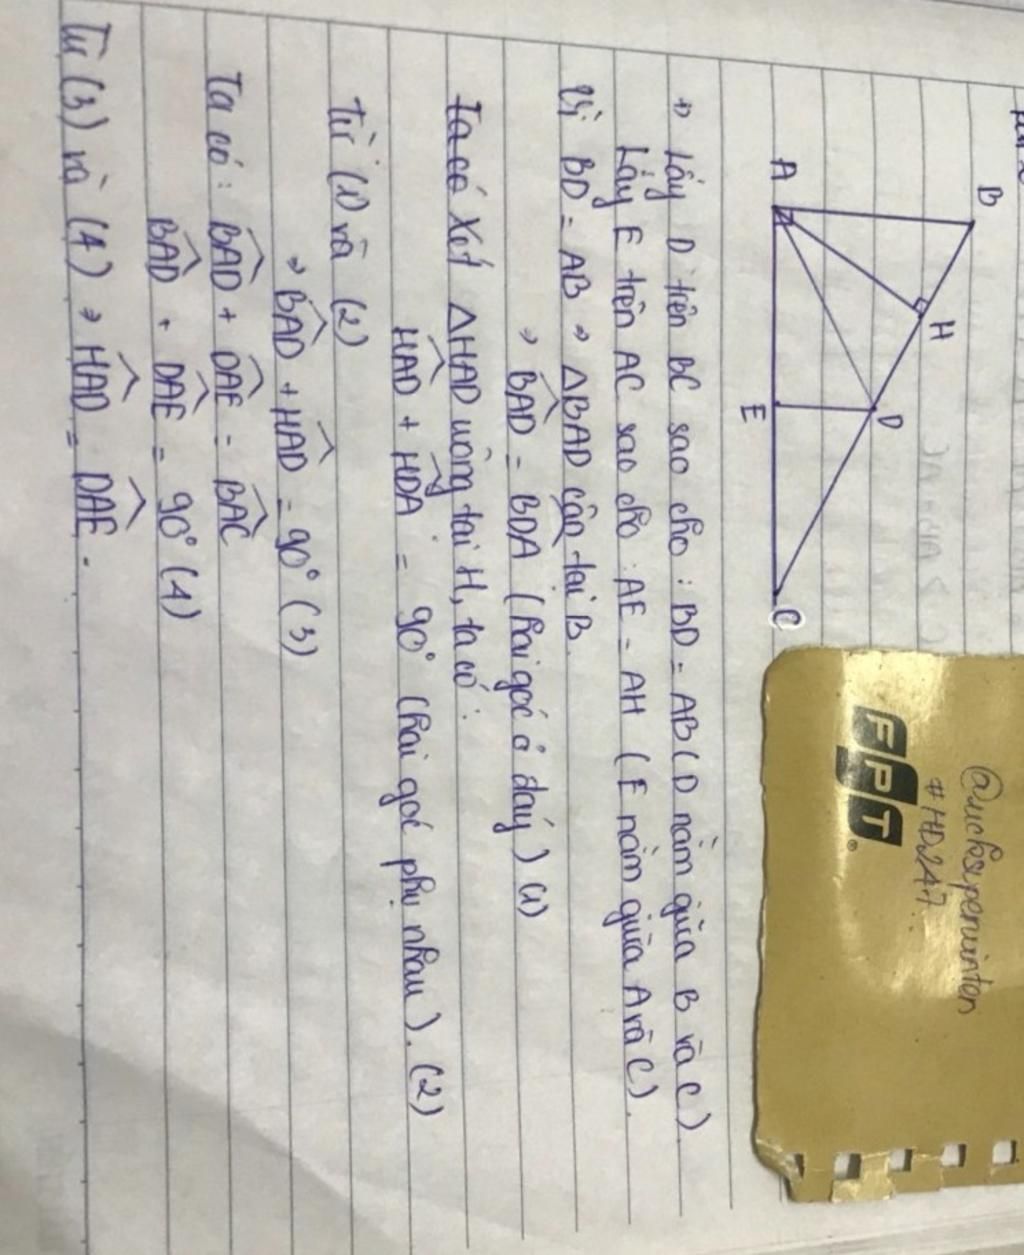 B
H
D
A
E
C
@uchsuperwinten
#HD247
FPT
→ Lấy D trên BC sao cho : BD = AB (D nằm giữa B và C).
Lấy E trên AC sao cho : AE = AH (E nằm giữa A và C).
Vì BD = AB → ΔBAD cân tại B.
→ BAD = BDA (hai góc ở đáy) (1)
Ta có Xét ΔHAD vuông tại H, ta có :
HAD + HDA = 90° (hai góc phụ nhau). (2)
Từ (1) và (2)
→ BAD + HAD = 90° (3)
Ta có : BAD + DAE = BAC
BAD + DAE = 90° (4)
Từ (3) và (4) → HAD = DAE.